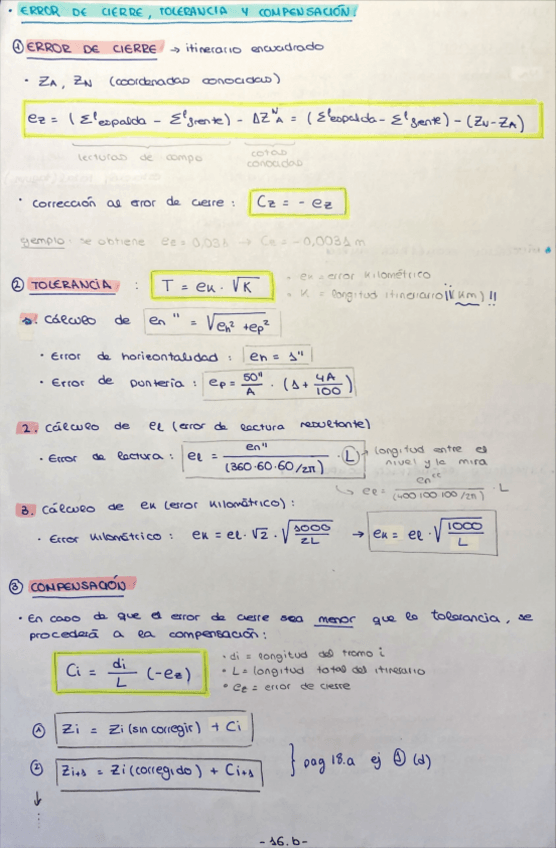 · ERROR DE CIERRE, TOLERANCIA Y COMPENSACIÓN:
① ERROR DE CIERRE → itinerario encuadrado
· ZA, ZN (coordenadas conocidas)
eZ = (Σl espalda - Σl frente) - ΔZ_A^N = (Σl espalda - Σl frente) - (ZN - ZA)
lecturas de campo
cotas conocidas
· Corrección al error de cierre: CZ = - eZ
ejemplo: se obtiene
→ CZ = -0,0031 m
② TOLERANCIA : T = eK · √K
- eK = error kilométrico
- K = longitud itinerario (Km)!!
1. Cálculo de en" = √(eh² + ep²)
· Error de horizontalidad: eh = 1"
· Error de puntería: ep = 50"/A · (1 + 4A/100)
2. Cálculo de el (error de lectura resultante)
· Error de lectura: el = en"/(360·60·60/2π) · L → longitud entre el nivel y la mira
↳ el = en^cc/(400·100·100/2π) · L
3. Cálculo de eK (error kilométrico):
· Error kilométrico: eK = el · √2 · √(1000/2L) → eK = el · √(1000/L)
③ COMPENSACIÓN
· En caso de que el error de cierre sea menor que la tolerancia, se
procederá a la compensación:
Ci = di/L (-eZ)
· di = longitud del tramo i
· L = longitud total del itinerario
· eZ = error de cierre
① Zi = Zi (sin corregir) + Ci
② Zi+1 = Zi (corregido) + Ci+1
} pag 18.a ej ① (d)
↓
⋮
-16.b-